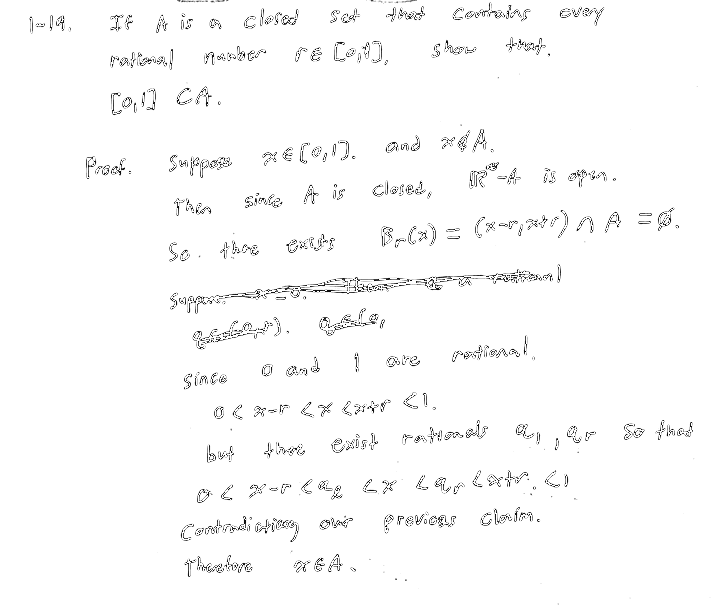 1-19. If A is a closed set that contains every
rational number r ∈ [0,1], show that.
[0,1] ⊂ A.
Proof. Suppose x ∈ [0,1]. and x ∉ A.
Then since A is closed, ℝ - A is open.
So. there exists B_r(x) = (x-r, x+r) ∩ A = ∅.
Suppose x = 0. a rational
since 0 and 1 are rational.
0 < x-r < x < x+r < 1.
but there exist rationals q_l, q_r so that
0 < x-r < q_l < x < q_r < x+r. < 1
Contradicting our previous claim.
Therefore x ∈ A.